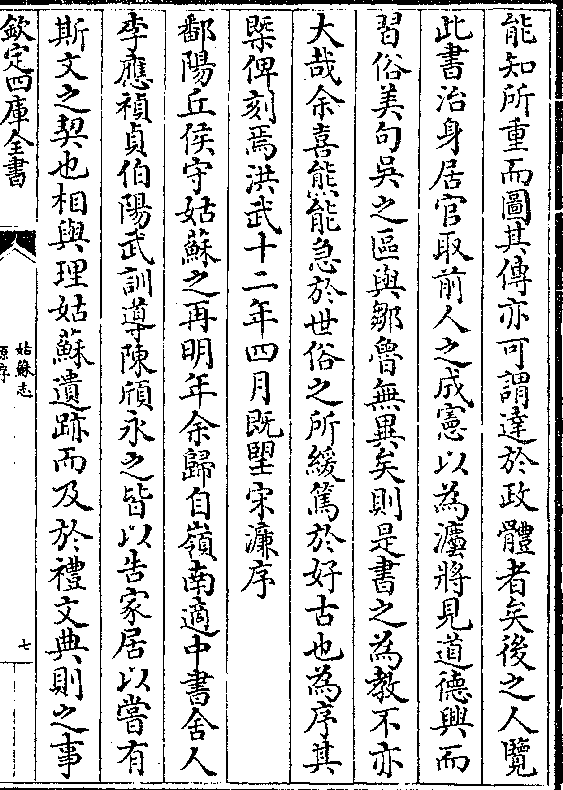 能知所重而圖其傳亦可謂達於政體者矣後之人覽
此書治身居官取前人之成憲以為灋將見道德興而
習俗美句吳之區與鄒魯無異矣則是書之為教不亦
大哉余喜能能急於世俗之所緩篤於好古也為序其
槩俾刻焉洪武十二年四月既朢宋濓序
鄱陽丘侯守姑蘇之再明年余歸自嶺南適中書舍人
李應禎貞伯陽武訓導陳頎永之皆以告家居以嘗有
斯文之契也相與理姑蘇遺跡而及於禮文典則之事
欽定四庫全書
姑蘇志
原序
七